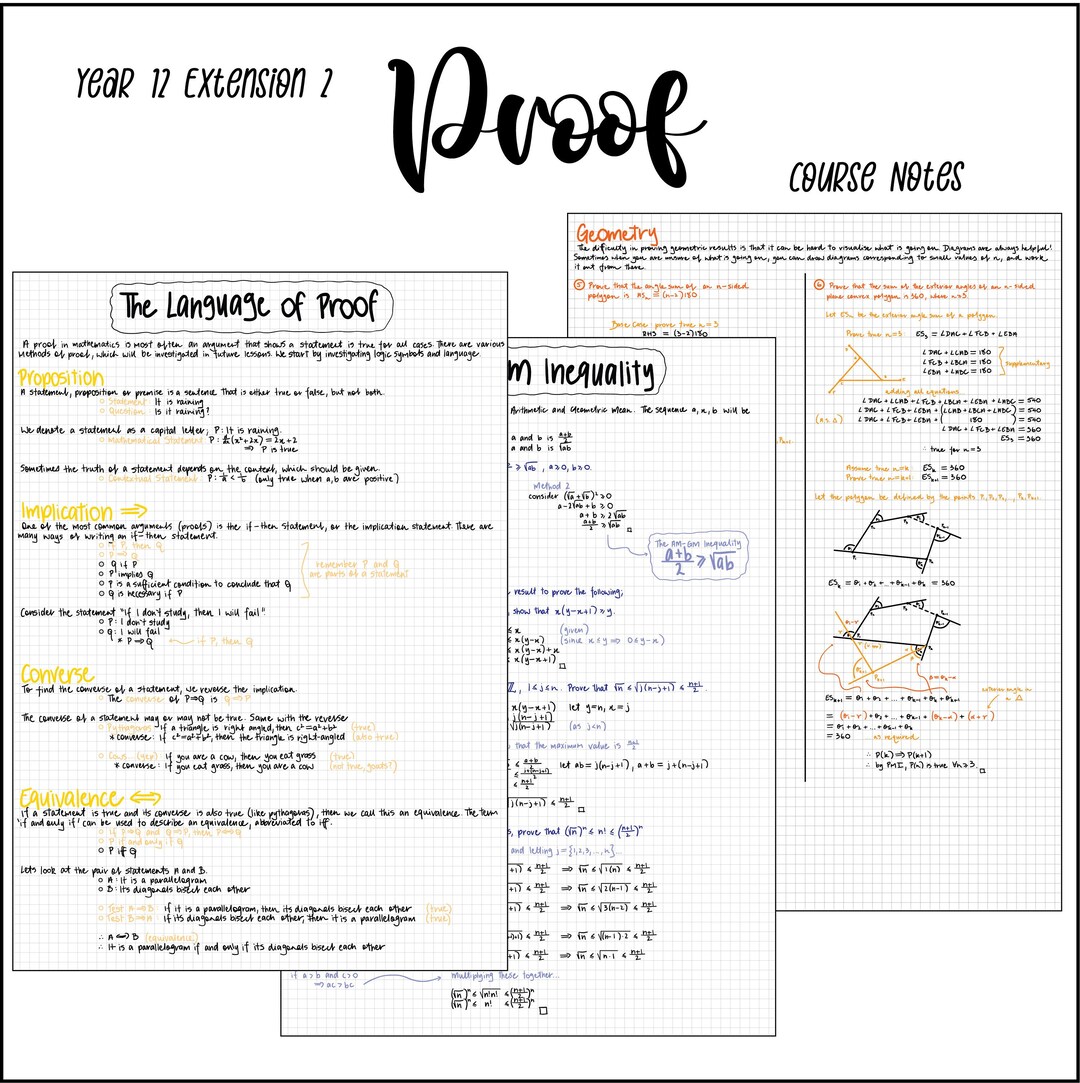 Year 12 Extension 2
Proof
Course Notes
The Language of Proof
A proof in mathematics is most often an argument that shows a statement is true for all cases. There are various
methods of proof, which will be investigated in future lessons. We start by investigating logic symbols and language.
Proposition
A statement, proposition or premise is a sentence that is either true or false, but not both.
○ Statement: It is raining
○ Question: Is it raining?
We denote a statement as a capital letter; P: It is raining.
○ Mathematical Statement: P: d/dx(x²+2x) = 2x+2
⇒ P is true
Sometimes the truth of a statement depends on the context, which should be given.
○ Contextual Statement: P: 1/a < 1/b (only true when a,b are positive)
Implication ⇒
One of the most common arguments (proofs) is the if-then statement, or the implication statement. There are
many ways of writing an if-then statement.
○ If P, then Q
○ P ⇒ Q
○ Q if P
○ P implies Q
○ P is a sufficient condition to conclude that Q
○ Q is necessary if P
remember P and Q
are parts of a statement
Consider the statement "If I don't study, then I will fail"
○ P: I don't study
○ Q: I will fail
* P⇒Q
if P, then Q
Converse
To find the converse of a statement, we reverse the implication.
○ The converse of P⇒Q is Q⇒P
The converse of a statement may or may not be true. Same with the reverse
○ Pythagoras: if a triangle is right angled, then c²=a²+b² (true)
* converse: if c²=a²+b², then the triangle is right-angled (also true)
○ Cows (yep) If you are a cow, then you eat grass (true)
* converse: If you eat grass, then you are a cow (not true, goats?)
Equivalence ⇔
If a statement is true and its converse is also true (like pythagoras), then we call this an equivalence. The term
'if and only if' can be used to describe an equivalence, abbreviated to iff.
○ If P⇒Q and Q⇒P, then P⇔Q
○ P if and only if Q
○ P iff Q
Lets look at the pair of statements A and B.
○ A: It is a parallelogram
○ B: Its diagonals bisect each other
○ Test A⇒B: If it is a parallelogram, then its diagonals bisect each other (true)
○ Test B⇒A: If its diagonals bisect each other, then it is a parallelogram (true)
∴ A⇔B (equivalence)
∴ It is a parallelogram if and only if its diagonals bisect each other
m Inequality
Arithmetic and Geometric Mean. The sequence a, x, b will be
a and b is (a+b)/2
a and b is √ab
≥ √ab, a≥0, b≥0.
Method 2
consider (√a+√b)²>0
a-2√ab+b ≥ 0
a+b ≥ 2√ab
(a+b)/2 ≥ √ab □
The AM-GM Inequality
(a+b)/2 ≥ √ab
result to prove the following;
show that x(y-x+1) ≥ y.
≤ x (given)
≤ x(y-x) (since x≤y ⇒ 0≤y-x)
≤ x(y-x)+x
≤ x(y-x+1) □
ℤ, 1≤j≤n. Prove that √n ≤ √j(n-j+1) ≤ (n+1)/2.
x(y-x+1) let y=n, x=j
j(n-j+1)
√j(n-j+1) (as j<n)
that the maximum value is (n+1)/2
≤ (a+b)/2 let ab=j(n-j+1), a+b=j+(n-j+1)
≤ (j+(n-j+1))/2
≤ (n+1)/2
j(n-j+1) ≤ (n+1)/2 □
, prove that (√n)ⁿ ≤ n! ≤ ((n+1)/2)ⁿ
and letting j={1,2,3,...,n}...
+1) ≤ (n+1)/2 ⇒ √n ≤ √1(n) ≤ (n+1)/2
+1) ≤ (n+1)/2 ⇒ √n ≤ √2(n-1) ≤ (n+1)/2
+1) ≤ (n+1)/2 ⇒ √n ≤ √3(n-2) ≤ (n+1)/2
+1) ≤ (n+1)/2 ⇒ √n ≤ √(n-1)·2 ≤ (n+1)/2
+1) ≤ (n+1)/2 ⇒ √n ≤ √n·1 ≤ (n+1)/2
if a>b and c>0
⇒ ac>bc
multiplying these together...
(√n)ⁿ ≤ √n!n! ≤ ((n+1)/2)ⁿ
(√n)ⁿ ≤ n! ≤ ((n+1)/2)ⁿ □
Geometry
The difficulty in proving geometric results is that it can be hard to visualise what is going on. Diagrams are always helpful!
Sometimes when you are unsure of what is going on, you can draw diagrams corresponding to small values of n, and work
it out from there.
⑤ Prove that the angle sum of an n-sided
polygon is ASₙ = (n-2)180
Base Case: prove true n=3
⑥ Prove that the sum of the exterior angles of an n-sided
plane convex polygon is 360, where n≥3.
Let ESₙ be the exterior angle sum of a polygon.
Prove true n=3: ES₃ = ∠DAC+∠FCB+∠EBA
∠DAC+∠CAB = 180
∠FCB+∠BCA = 180
∠EBA+∠ABC = 180
supplementary
adding all equations
∠DAC+∠CAB+∠FCB+∠BCA+∠EBA+∠ABC = 540
∠DAC+∠FCB+∠EBA+(∠CAB+∠BCA+∠ABC) = 540
∠DAC+∠FCB+∠EBA+( 180 ) = 540
∠DAC+∠FCB+∠EBA = 360
ES₃ = 360
∴ true for n=3
Assume true n=k: ESₖ = 360
Prove true n=k+1: ESₖ₊₁ = 360
Let the polygon be defined by the points P₁, P₂, P₃, ..., Pₖ, Pₖ₊₁.
ESₖ = θ₁+θ₂+...+θₖ₋₁+θₖ = 360
exterior angle in
a Δ
ESₖ₊₁ = θ₁+θ₂+...+θₖ₋₁+θₖ+θₖ₊₁
= 360 as required
∴ P(k) ⇒ P(k+1)
∴ by PMI, P(n) is true ∀n≥3. □